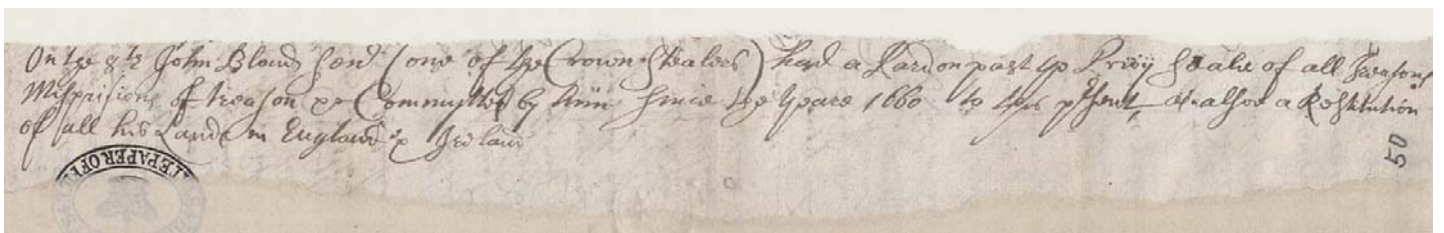 On the 8th John Bloud senr (one of the Crown Stealers) had a Pardon past ye Privy Seale of all Treasons
Misprisions of treason &c Committed by him since the yeare 1660 to this prsent, as alsoe a Restitution
of all his Lands in England & Ireland
50
PAPER OFF